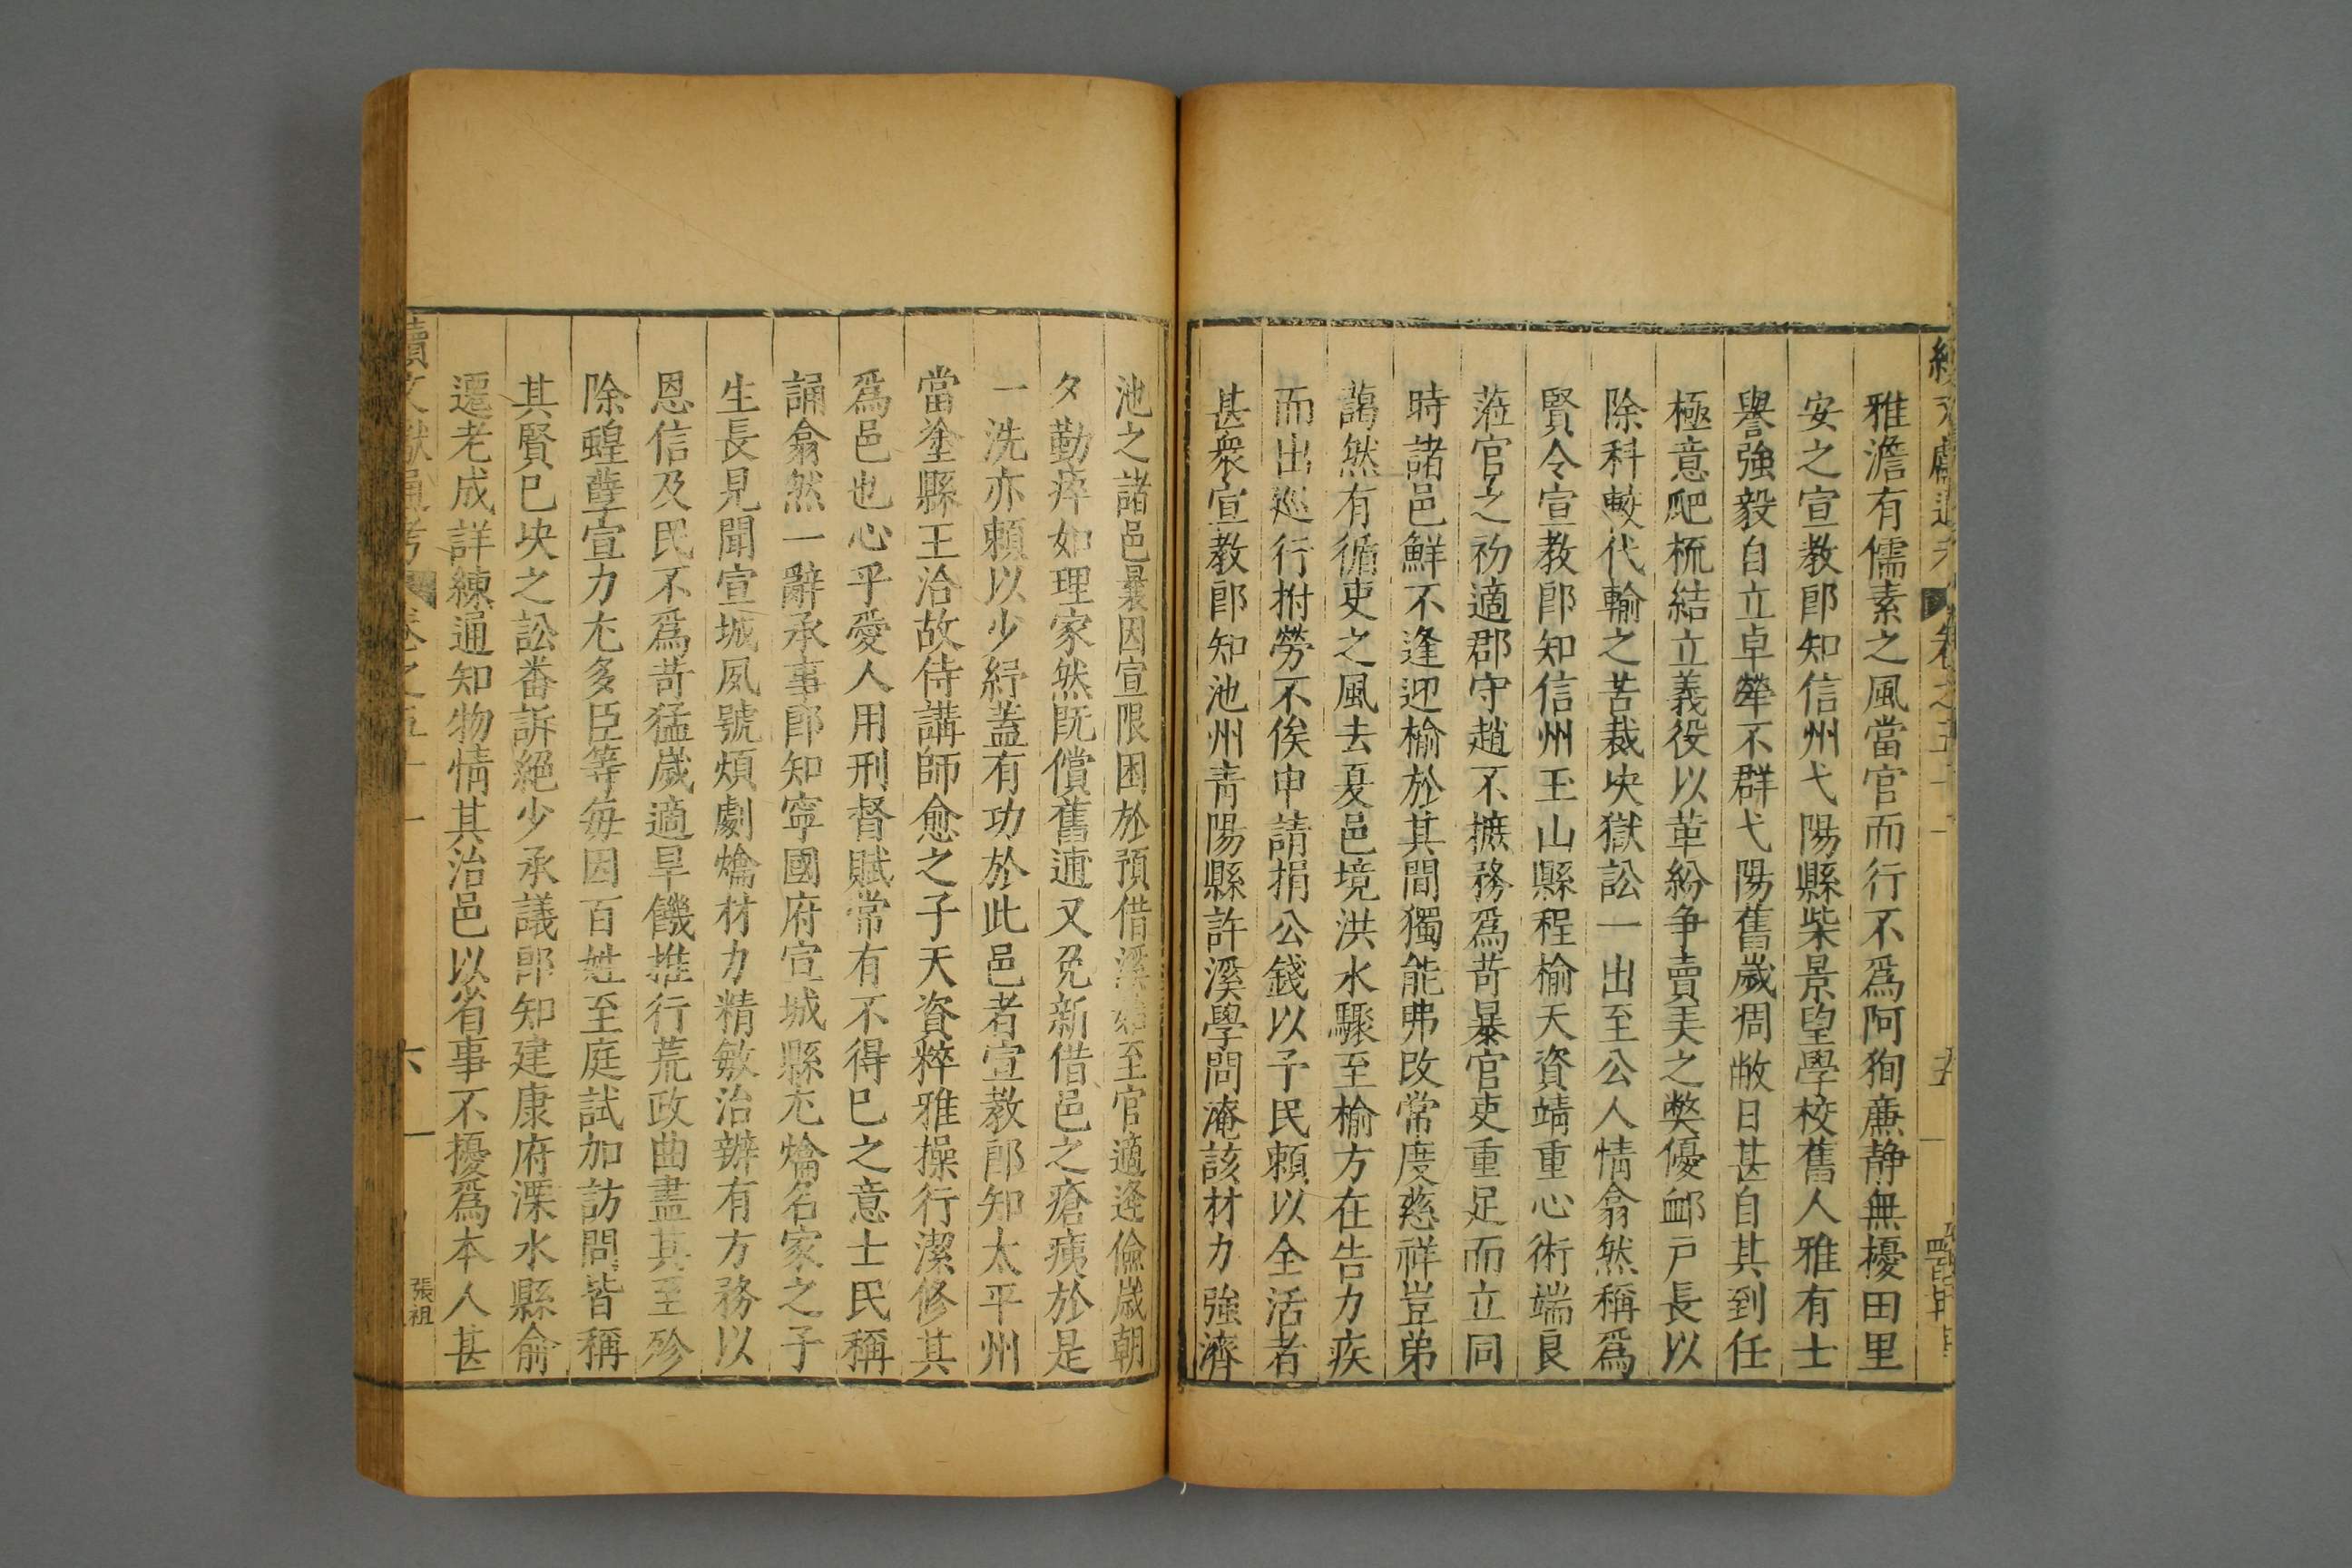 雅澹有儒素之風當官而行不爲阿狥亷静無擾田里
安之宣教郎知信州弋陽縣柴景望學校舊人雅有士
譽強毅自立卓犖不群弋陽舊歲凋敝日甚自其到任
極意爬梳結立義役以革紛争賣美之獘優衈户長以
除科較代輸之苦裁决獄訟一出至公人情翕然稱爲
賢令宣教郎知信州玉山縣程榆天資靖重心術端良
蒞官之初適郡守趙不摭務爲苛暴官吏重足而立同
時諸邑鮮不逢迎榆於其間獨能弗改常度慈祥豈弟
藹然有循吏之風去夏邑境洪水驟至榆方在告力疾
而出廵行拊勞不俟申請捐公錢以予民頼以全活者
甚衆宣教郎知池州青陽縣許溪學問淹該材力強濟
池之諸邑曩因宣限困於預借溪始至官適逢儉歲朝
夕勤瘁如理家然既償舊逋又免新借邑之瘡痍於是
一洗亦頼以少紓蓋有功於此邑者宣教郎知太平州
當塗縣王洽故侍講師愈之子天資粹雅操行潔修其
爲邑也心乎愛人用刑督賦常有不得已之意士民稱
誦翕然一辭承事郎知寧國府宣城縣尢爚名家之子
生長見聞宣城夙號煩劇爚材力精敏治辦有方務以
恩信及民不爲苛猛歲適旱饑推行荒政曲盡其至殄
除蝗孽宣力尢多臣等每因百姓至庭試加訪問皆稱
其賢已决之訟畨訴絕少承議郎知建康府溧水縣俞
遷老成詳練通知物情其治邑以省事不擾爲本人甚
續文獻通考 卷之五十一 六 張祖